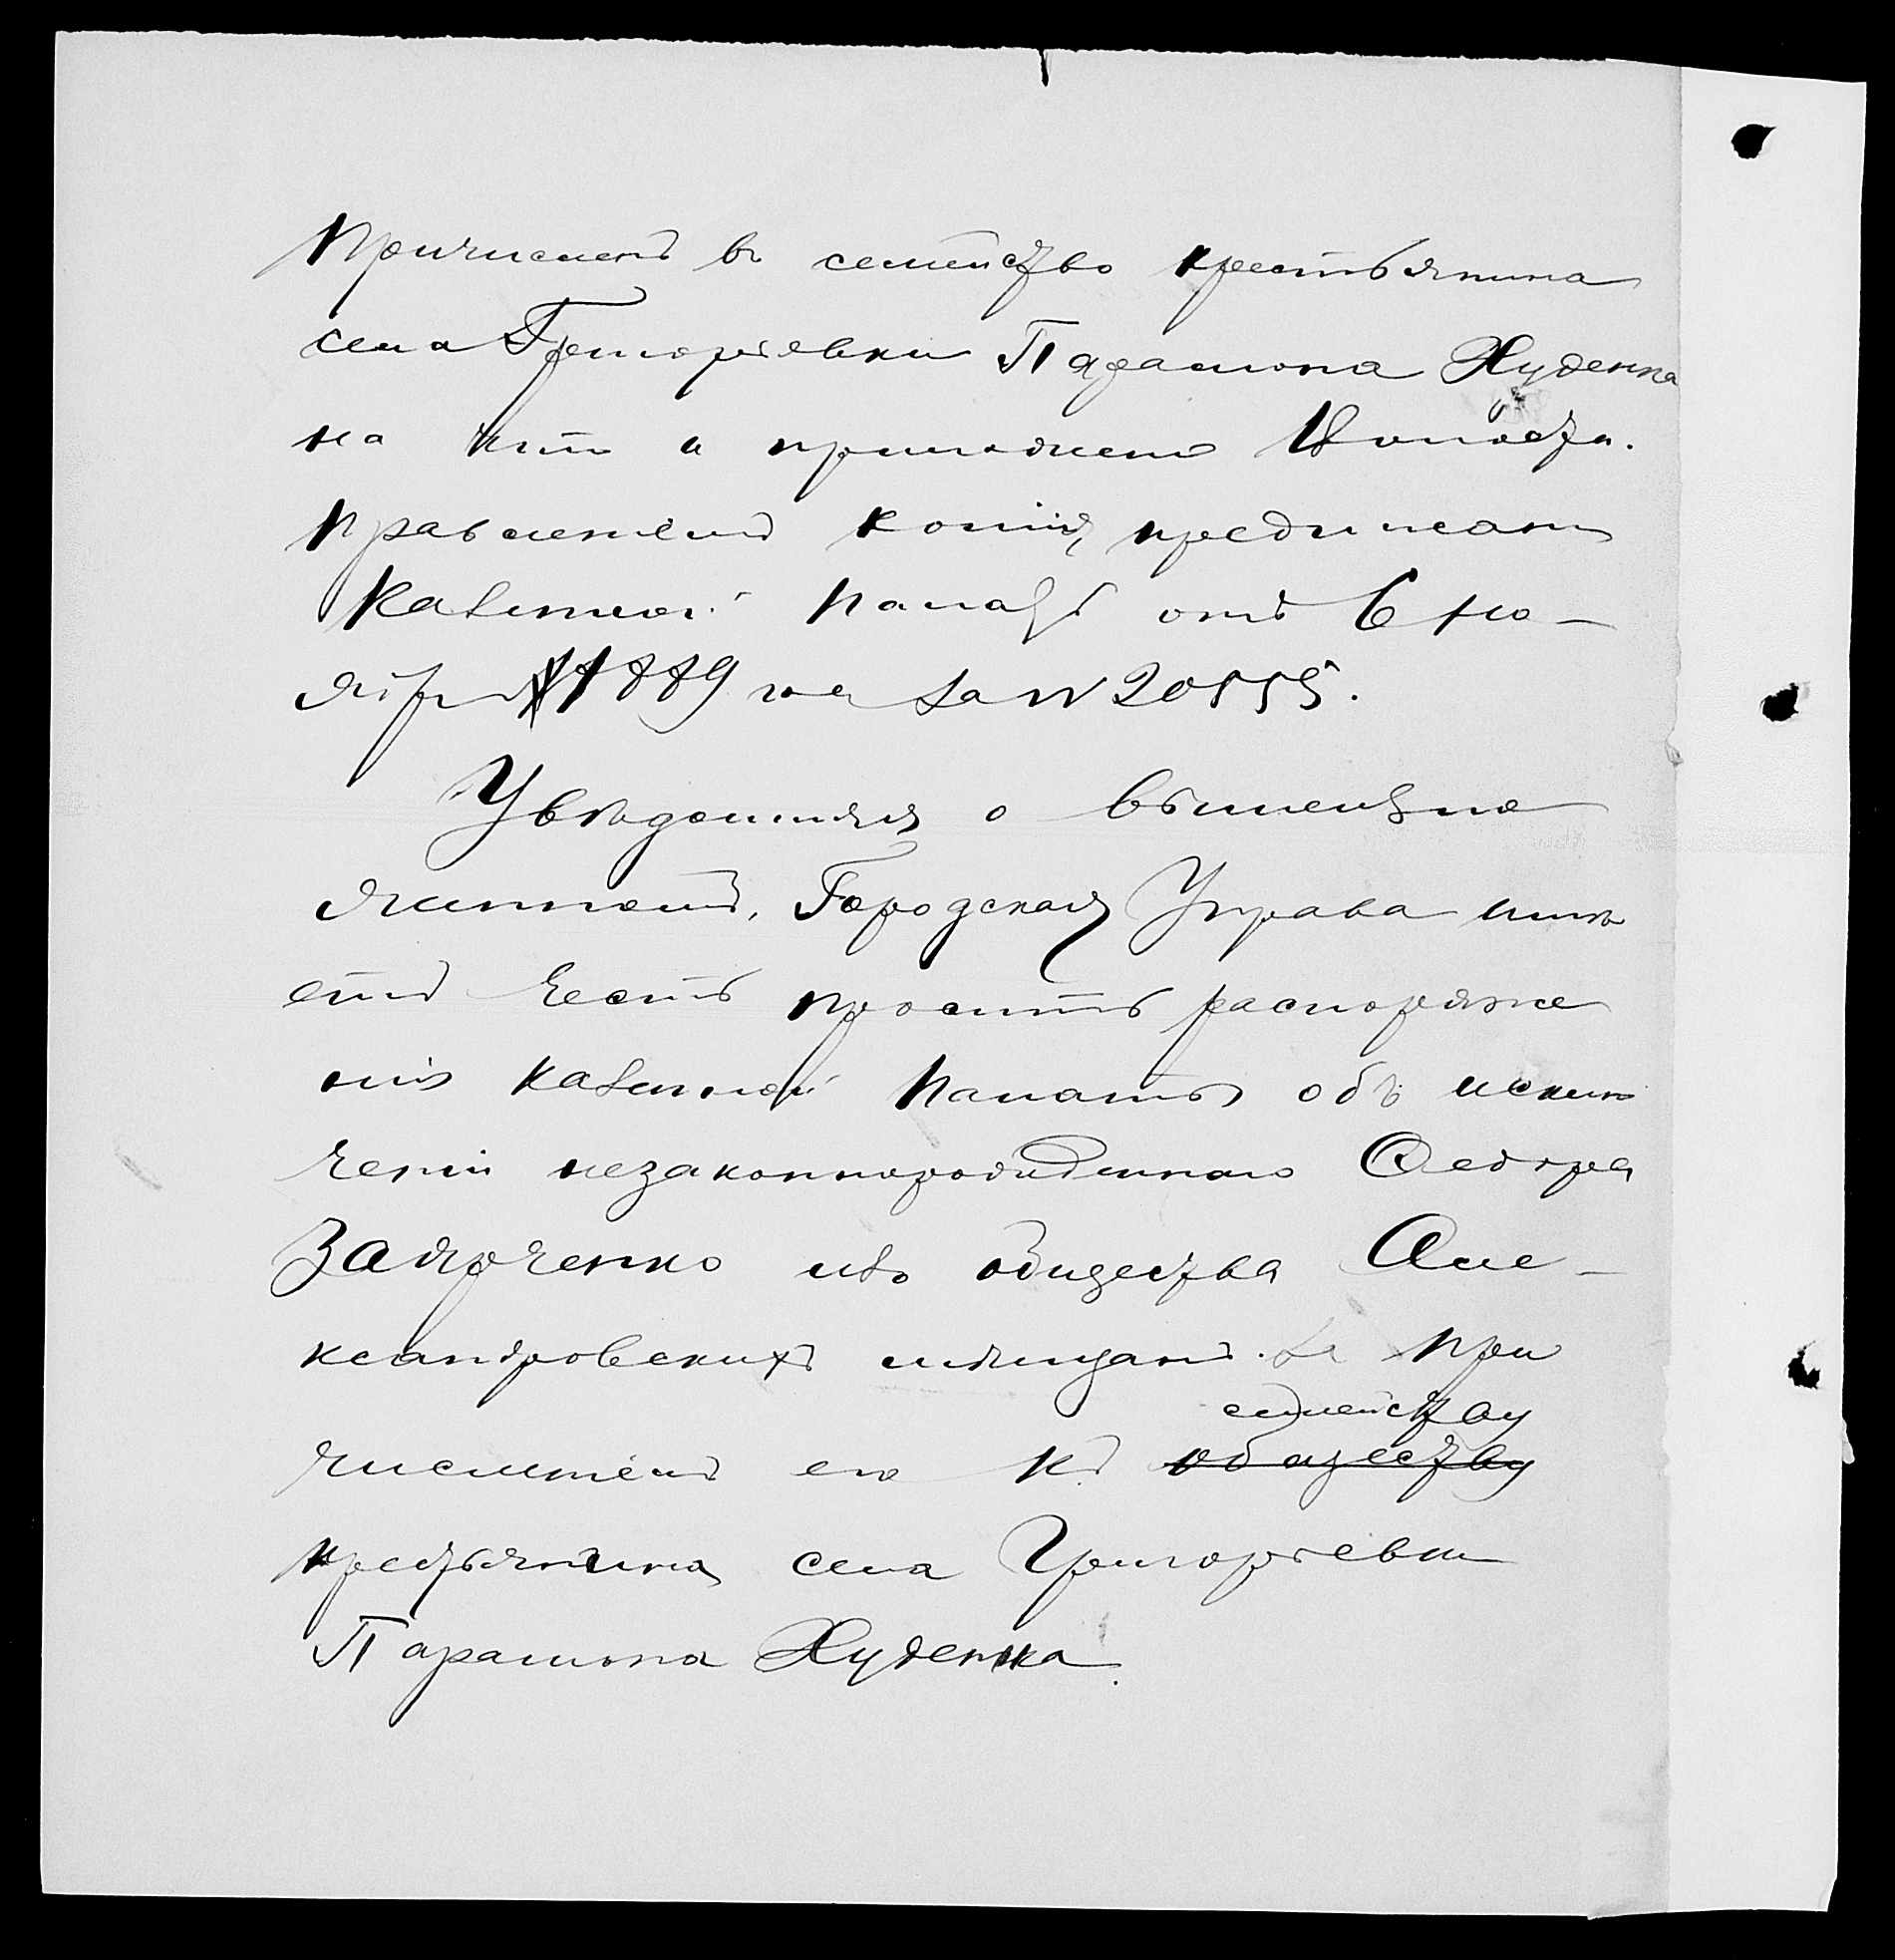 причисленъ въ семейство крестьянина
села Григорьевки Парамона Худенка
на что и приложена Волост.
Правленіемъ копія предписанія
Казенной Палаты отъ 6 но-
ября 1889 года за N 20555.
Увѣдомляя о вышеизло
женномъ, Городская Управа имѣ
етъ честь просить распоряже
нія Казенной Палаты объ исклю
ченіи незаконнорожденнаго Федора
Заярченко изъ общества Але-
ксандровскихъ мѣщанъ и при
семейству
численіемъ его къ обществу
крестьянина села Григорьевки
Парамона Худенка.